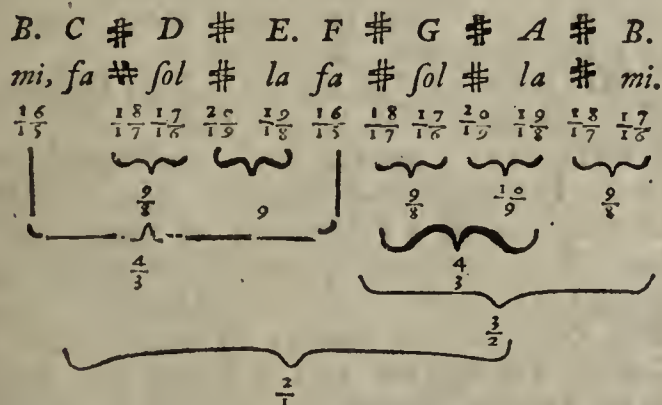 B. C # D # E. F # G # A # B.
mi, fa # ſol # la fa # ſol # la # mi.
16/15 18/17 17/16 20/19 19/18 16/15 18/17 17/16 20/19 19/18 18/17 17/16
9/8 9 9/8 10/9 9/8
4/3 4/3
3/2
2/1